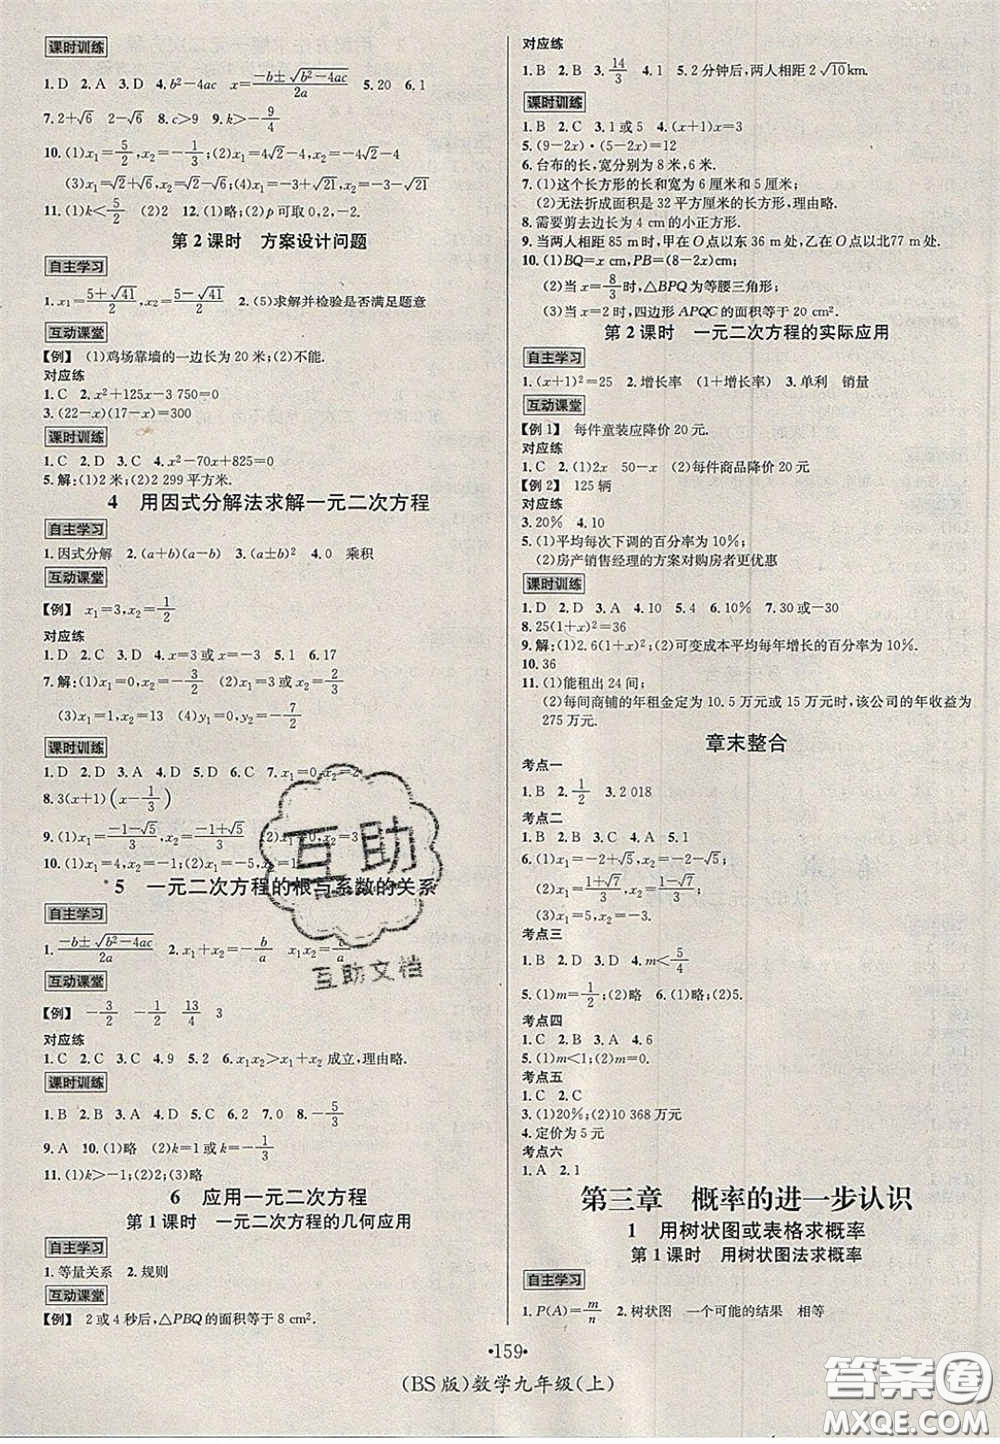 课时训练
1.D 2.A 3.D 4.b²-4ac x=(-b±√(b²-4ac))/2a 5.20 6.1
7.2+√6 2-√6 8.c>9 9.k>-9/4
10.(1)x₁=5/2,x₂=-1/3;(2)x₁=4√2-4,x₂=-4√2-4
(3)x₁=√2+√6,x₂=√2-√6;(4)x₁=-3+√21,x₂=-3-√21
11.(1)k<5/2 (2)2 12.(1)略;(2)p可取0,2,-2.
第2课时 方案设计问题
自主学习
1.x₁=(5+√41)/2,x₂=(5-√41)/2 2.(5)求解并检验是否满足题意
互动课堂
【例】 (1)鸡场靠墙的一边长为20米;(2)不能.
对应练
1.C 2.x²+125x-3 750=0
3.(22-x)(17-x)=300
课时训练
1.C 2.D 3.C 4.x²-70x+825=0
5.解:(1)2米;(2)2 299平方米.
4 用因式分解法求解一元二次方程
自主学习
1.因式分解 2.(a+b)(a-b) 3.(a±b)² 4.0 乘积
互动课堂
【例】 x₁=3,x₂=1/2
对应练
1.D 2.C 3.D 4.x=3或x=-3 5.1 6.17
7.解:(1)x₁=0,x₂=3/2;(2)x₁=0,x₂=2
(3)x₁=1,x₂=2;(4)y₁=0,y₂=-7/2
课时训练
1.D 2.D 3.A 4.D 5.A 6.C 7.x₁=0,x₂=3
8.3(x+1)(x-1/3)
9.(1)x₁=(-1-√5)/3,x₂=(-1+√5)/3 (2)x₁=0,x₂=-13
10.(1)x₁=4,x₂=-1;(2)x₁=5,x₂=1
5 一元二次方程的根与系数的关系
自主学习
1.(-b±√(b²-4ac))/2a 2.x₁+x₂=-b/a x₁x₂=
互动课堂
【例】 -3/2 -1/2 13/4 3
对应练
1.C 2.C 3.C 4.9 5.2 6.x₁x₂>x₁+x₂成立,理由略.
课时训练
1.B 2.B 3.A 4.D 5.C 6.2 7.0 8.-1/3
9.A 10.(1)略 (2)k=1或k=-1/3
11.(1)k>-1;(2)2;(3)略
6 应用一元二次方程
第1课时 一元二次方程的几何应用
自主学习
1.等量关系 2.规则
互动课堂
【例】 2或4秒后,△PBQ的面积等于8 cm².
对应练
1.B 2.B 3.14/3 4.1 5.2分钟后,两人相距2√10km.
课时训练
1.B 2.C 3.1或5 4.(x+1)x=3
5.(9-2x)·(5-2x)=12
6.台布的长,宽分别为8米,6米.
7.(1)这个长方形的长和宽为6厘米和5厘米;
(2)无法折成面积是32平方厘米的长方形,理由略.
8.需要剪去边长为4 cm的小正方形.
9.当两人相距85 m时,甲在O点以东36 m处,乙在O点以北77 m处.
10.(1)BQ=x cm,PB=(8-2x)cm;
(2)当x=8/3时,△BPQ为等腰三角形;
(3)当x=2时,四边形APQC的面积等于20 cm².
第2课时 一元二次方程的实际应用
自主学习
1.(x+1)²=25 2.增长率 (1+增长率) 3.单利 销量
互动课堂
【例1】 每件童装应降价20元.
对应练
1.C 2.(1)2x 50-x (2)每件商品降价20元.
【例2】 125辆
3.20% 4.10
5.(1)平均每次下调的百分率为10%;
(2)房产销售经理的方案对购房者更优惠
课时训练
1.D 2.D 3.D 4.A 5.A 6.10% 7.30或-30
8.25(1+x)²=36
9.解:(1)2.6(1+x)²;(2)可变成本平均每年增长的百分率为10%.
10.36
11.(1)能租出24间;
(2)每间商铺的年租金定为10.5万元或15万元时,该公司的年收益为
275万元.
章末整合
考点一
1.B 2.1/2 3.2 018
考点二
1.B 2.D 3.C 4.A 5.A
6.(1)x₁=-2+√5,x₂=-2-√5;
(2)x₁=(1+√7)/3,x₂=(1-√7)/3;
(3)x₁=-1,x₂=2
考点三
1.A 2.B 3.D 4.m<5/4
5.(1)m=1/2;(2)略 6.(1)略;(2)5.
考点四
1.C 2.C 3.A 4.6
5.(1)m<1;(2)m=0.
考点五
1.C 2.C
3.(1)20%;(2)10 368万元
4.定价为5元
考点六
1.A 2.1
第三章 概率的进一步认识
1 用树状图或表格求概率
第1课时 用树状图法求概率
自主学习
1.P(A)=m/n 2.树状图 一个可能的结果 相等
·159·
(BS版)数学九年级(上)
互助
互助文档
答案圈
MXQE.COM